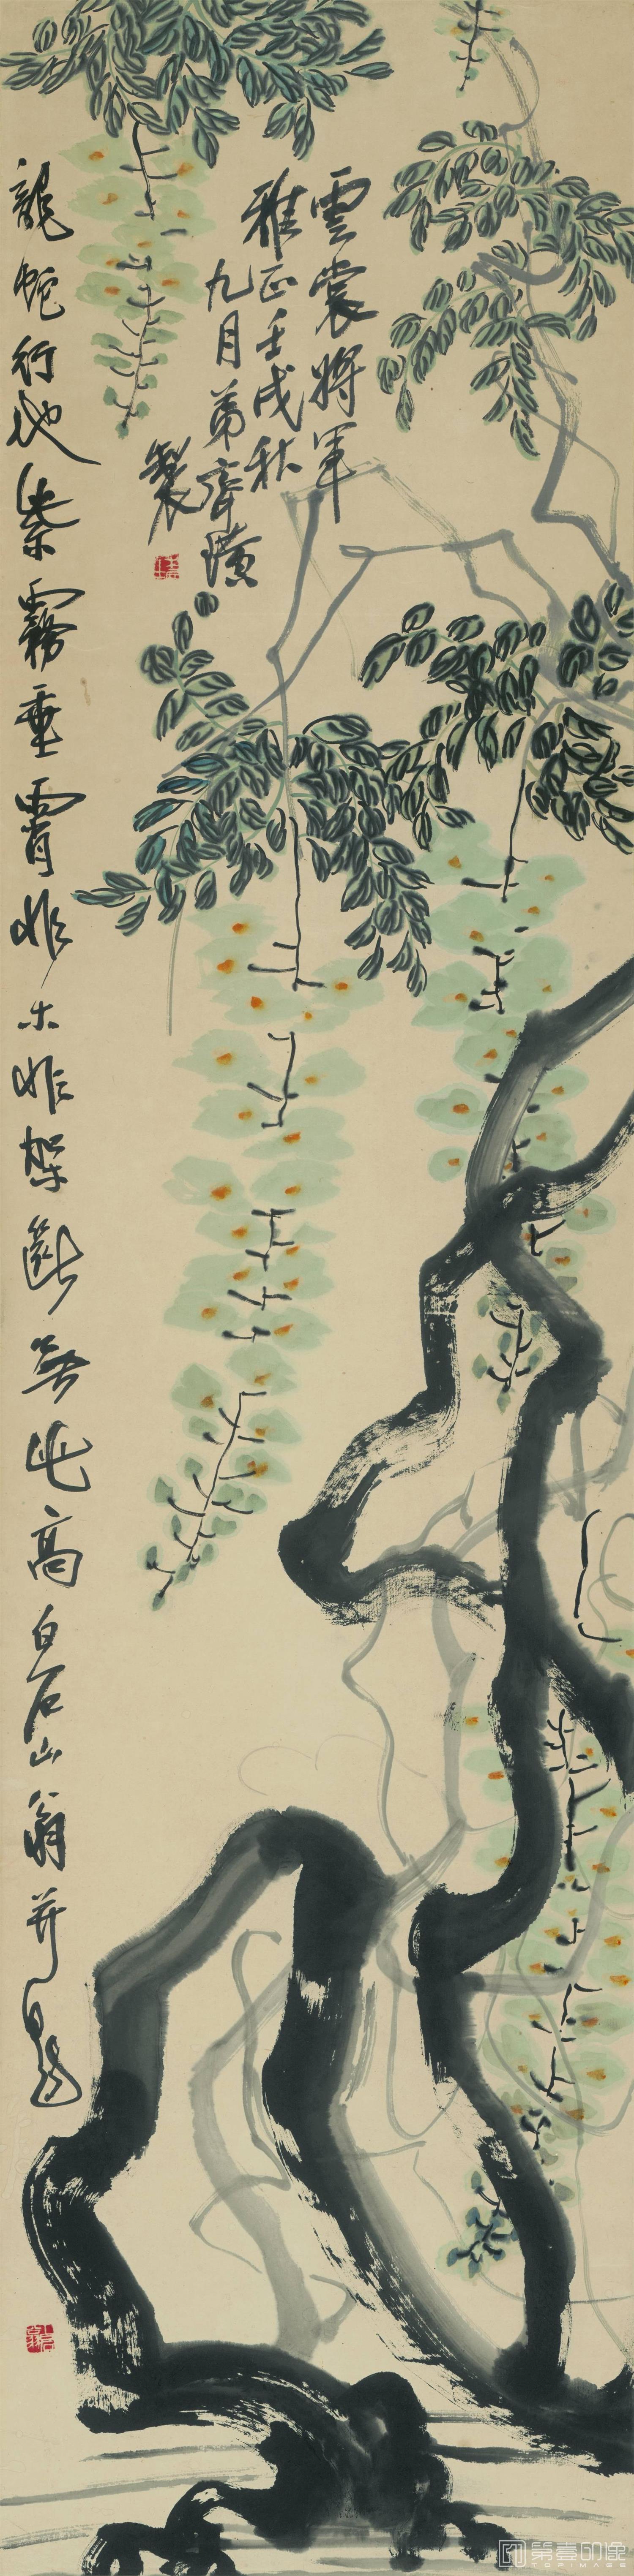 雲裳將軍
雅正壬戌秋
九月弟齊璜
製
龍蛇行地紫霧垂霄非木非架斷無此高白石山翁并題
第壹印像
TOPIMAGE